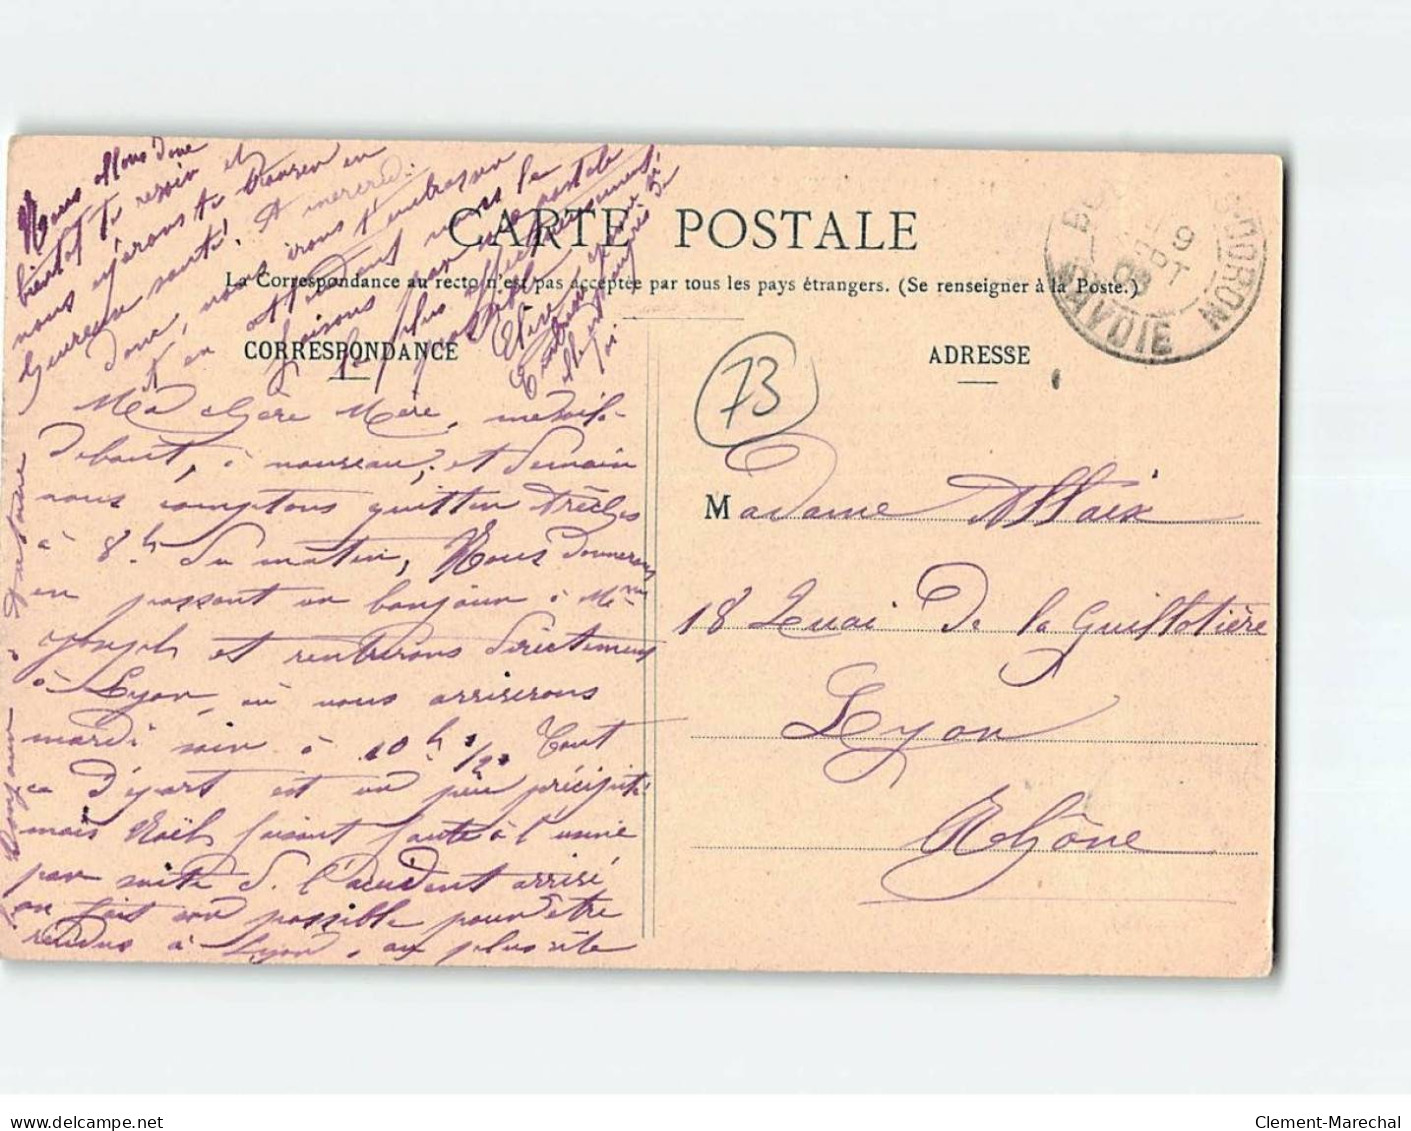 CARTE POSTALE
La Correspondance au recto n'est pas acceptée par tous les pays étrangers. (Se renseigner à la Poste.)
CORRESPONDANCE
ADRESSE
SAVOIE
73
Ma chère Mère, me voilà
debout, à nouveau, et demain
nous comptons quitter
à 8h du matin, Nous donnerons
en passant un bonjour à Mme
Joseph et rentrerons directement
à Lyon, où nous arriverons
mardi soir à 10h 1/2. Tout
ce départ est un peu précipité
mais Noël faisant faute à l'usine
par suite d. l'accident arrivé
on fait son possible pour être
rendus à Lyon, au plus vite
Nous allons donc
bientôt te revoir et
nous espérons te trouver en
heureuse santé. A mercredi
donc, nous irons t'embrasser
et en attendant nous le
faisons par la postale
le plus affectueusement
possible
Madame Allaix
18 Quai de la Guillotière
Lyon
Rhône
Clement-Marechal